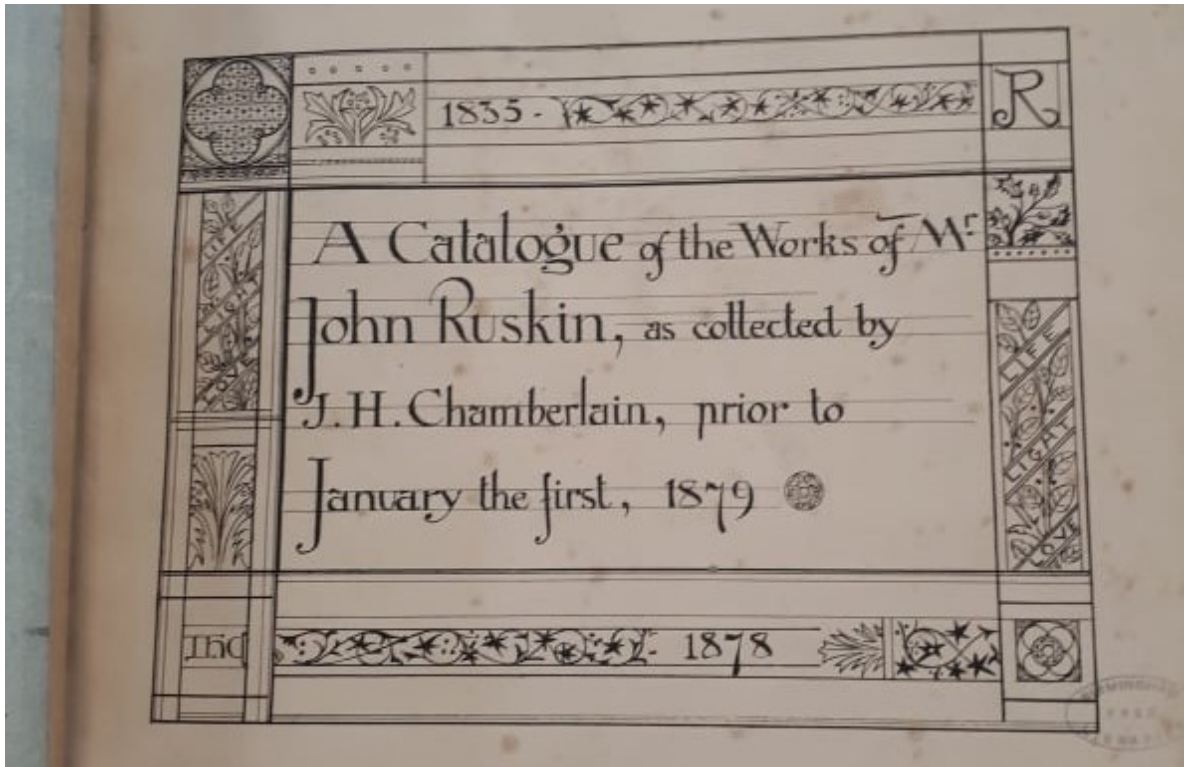 1835 -
R
A Catalogue of the Works of Mr
John Ruskin, as collected by
J. H. Chamberlain, prior to
January the first, 1879
LIFE
LIGHT
LOVE
LIFE
LIGHT
LOVE
JhC
- 1878
BIRMINGHAM
FREE